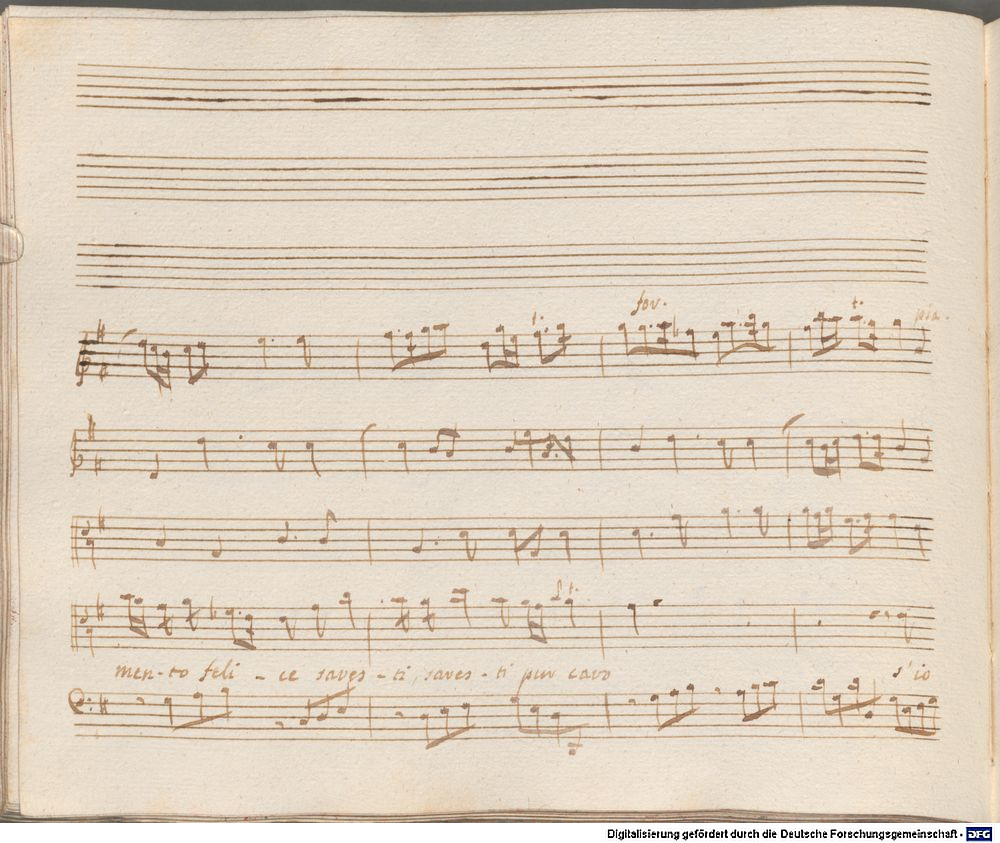 for.
t.
pia.
t.
t.
men-to feli - ce sares - ti, sares - ti pur caro s'io
Digitalisierung gefördert durch die Deutsche Forschungsgemeinschaft - DFG